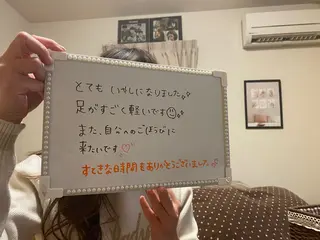 とても いやしになりました♪
足がすごく軽いです☺
また、自分へのごほうびに
来たいです♡
すてきな時間をありがとうございました♪